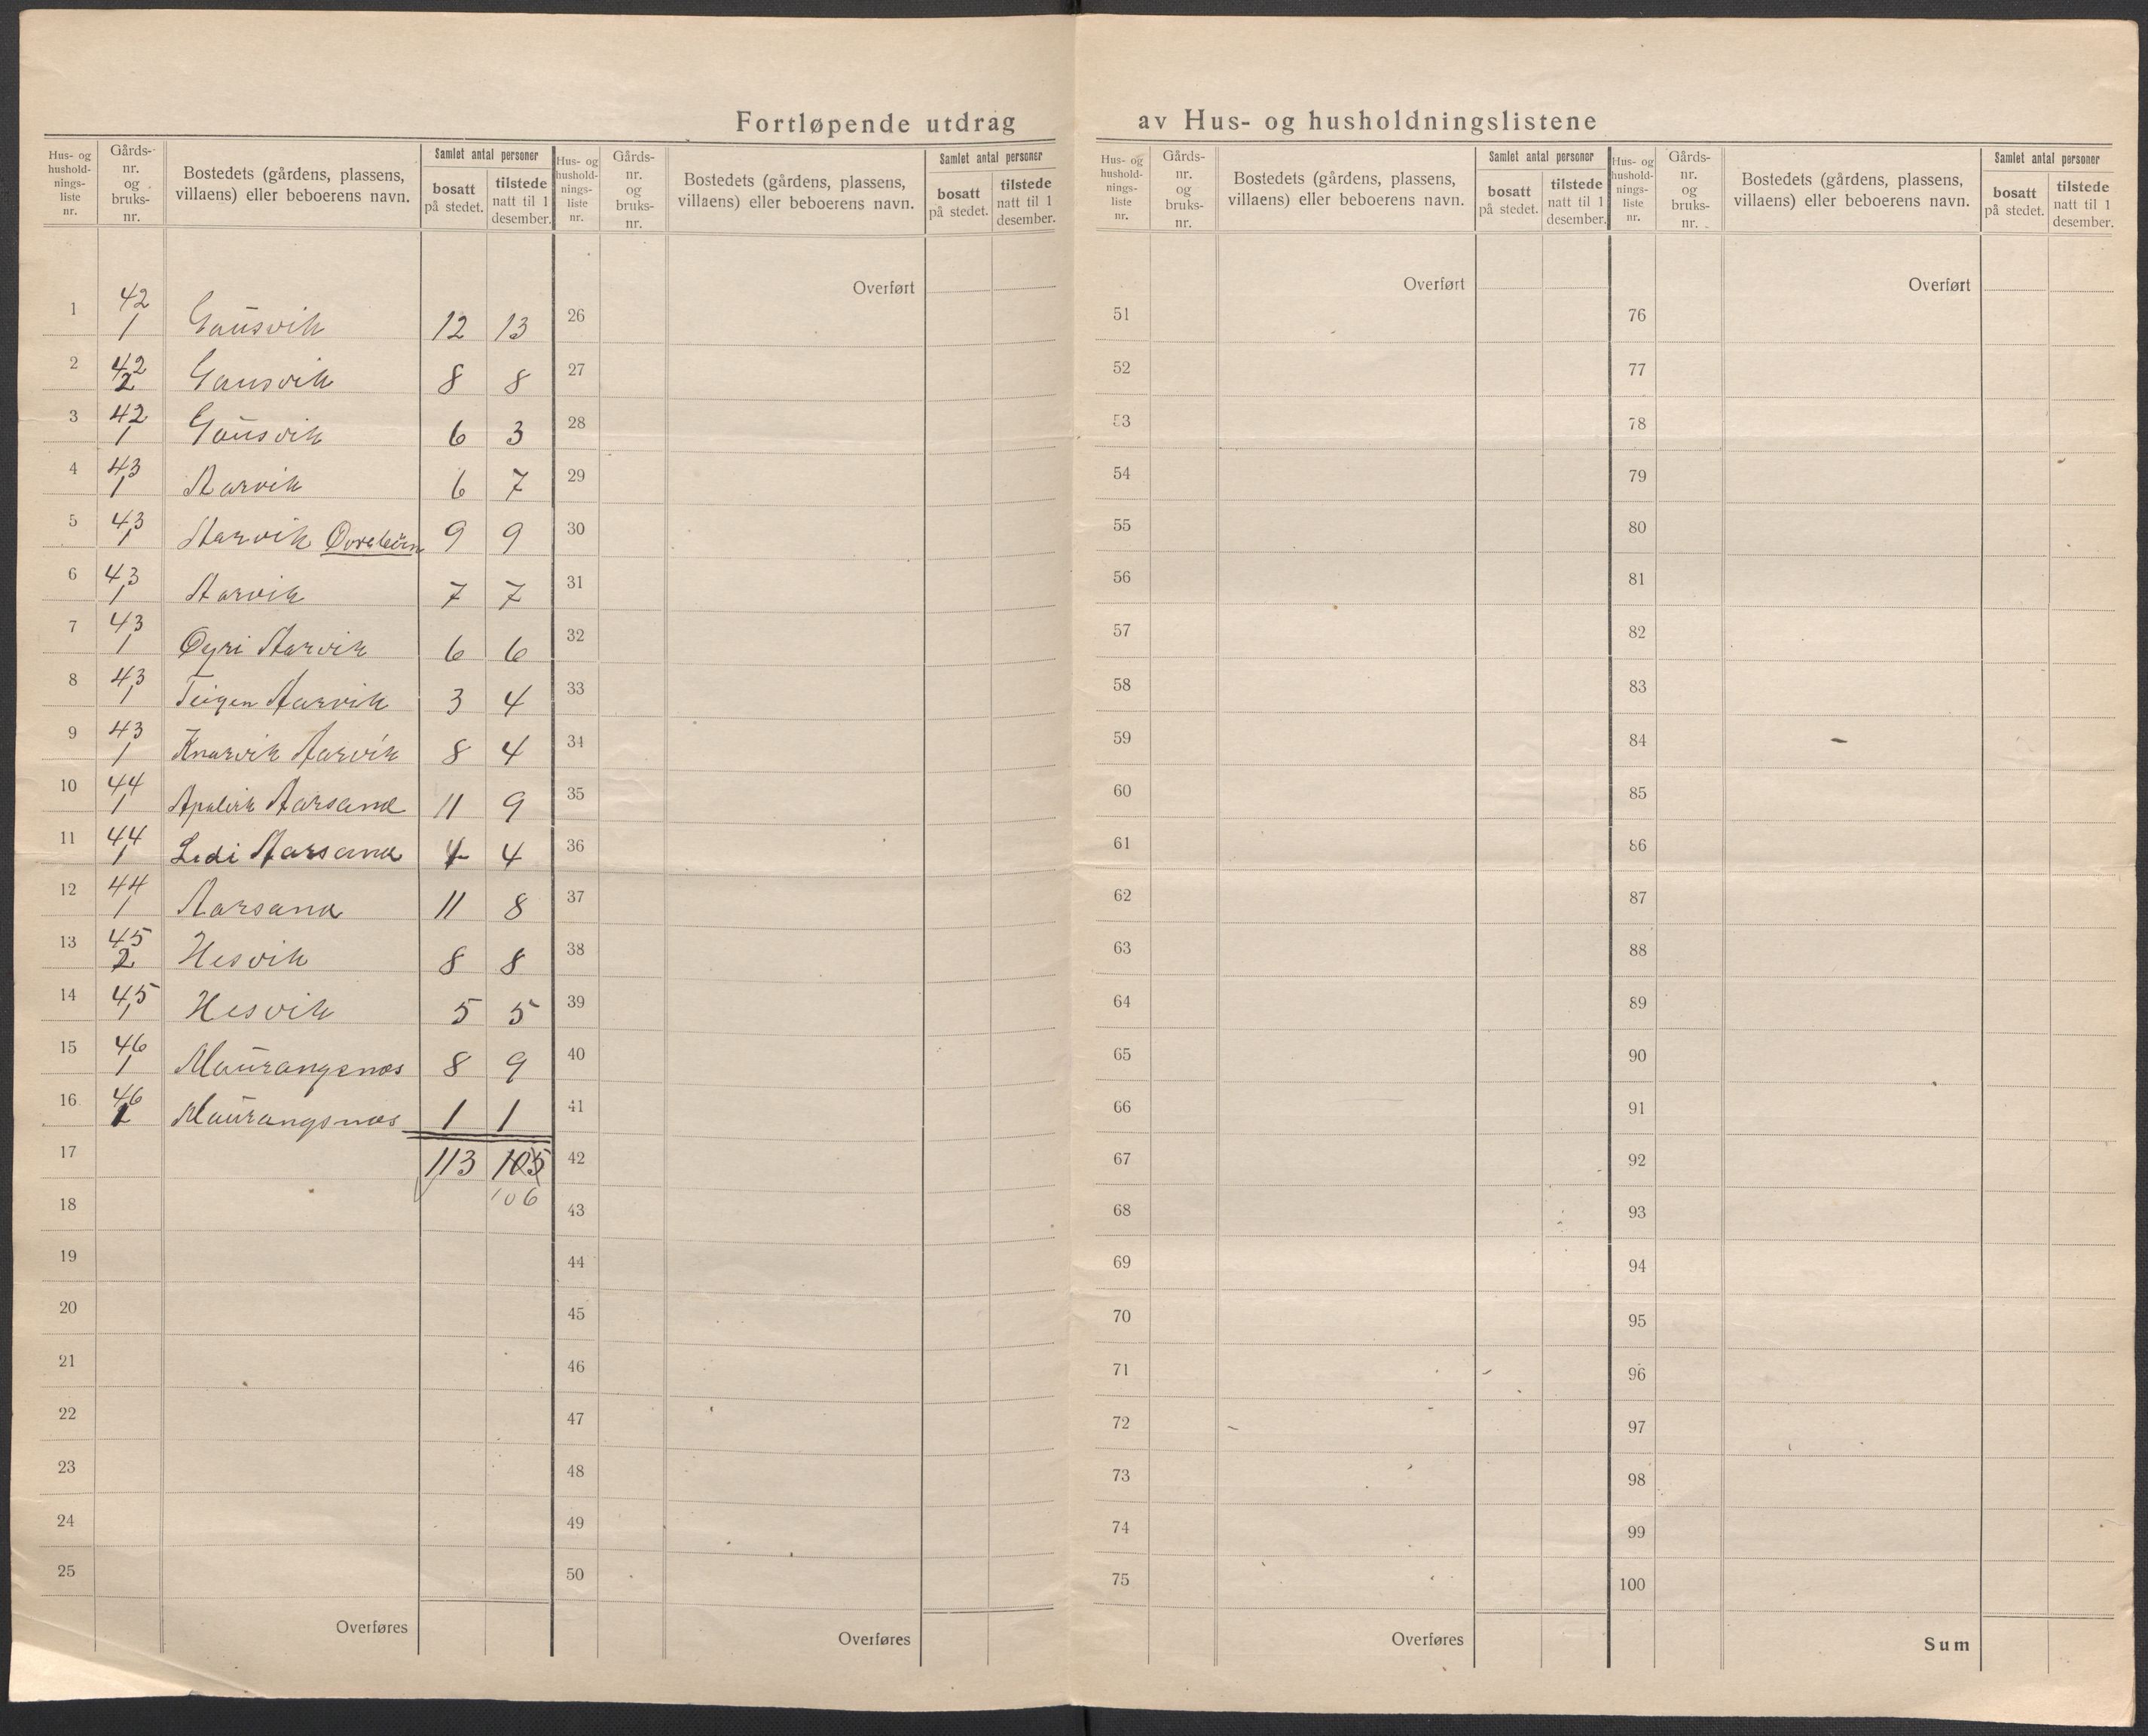 Fortløpende utdrag av Hus- og husholdningslistene
Hus- og hushold-nings-liste nr. Gårds-nr. og bruks-nr. Bostedets (gårdens, plassens, villaens) eller beboerens navn. Samlet antal personer bosatt på stedet. tilstede natt til 1 desember.
1 42 1 Gausvik 12 13
2 42 2 Gausvik 8 8
3 42 1 Gausvik 6 3
4 43 1 Aarvik 6 7
5 43 1 Aarvik 9 9
6 43 1 Aarvik 7 7
7 43 1 Øyri Aarvik 6 6
8 43 1 Teigen Aarvik 3 4
9 43 1 Knarvik Aarvik 8 4
10 44 1 Apalvik Aarsand 11 9
11 44 1 Ledi Aarsand 4 4
12 44 1 Aarsand 11 8
13 45 2 Hesvik 8 8
14 45 1 Hesvik 5 5
15 46 1 Maurangsnes 8 9
16 46 2 Maurangsnes 1 1
17 113 105
18 106
19
20
21
22
23
24
25
Overføres
Hus- og hushold-nings-liste nr. Gårds-nr. og bruks-nr. Bostedets (gårdens, plassens, villaens) eller beboerens navn. Samlet antal personer bosatt på stedet. tilstede natt til 1 desember.
Overført
26
27
28
29
30
31
32
33
34
35
36
37
38
39
40
41
42
43
44
45
46
47
48
49
50
Overføres
Hus- og hushold-nings-liste nr. Gårds-nr. og bruks-nr. Bostedets (gårdens, plassens, villaens) eller beboerens navn. Samlet antal personer bosatt på stedet. tilstede natt til 1 desember.
Overført
51
52
53
54
55
56
57
58
59
60
61
62
63
64
65
66
67
68
69
70
71
72
73
74
75
Overføres
Hus- og hushold-nings-liste nr. Gårds-nr. og bruks-nr. Bostedets (gårdens, plassens, villaens) eller beboerens navn. Samlet antal personer bosatt på stedet. tilstede natt til 1 desember.
Overført
76
77
78
79
80
81
82
83
84
85
86
87
88
89
90
91
92
93
94
95
96
97
98
99
100
Sum